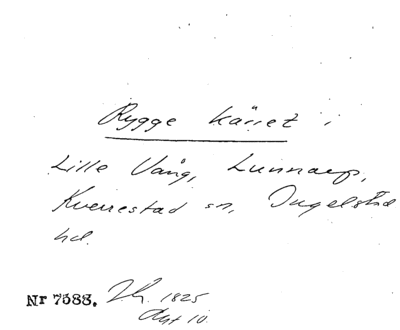 Rygge kärret i
Lille Vång, Lunnarp,
Kverrestad sn, Ingelstad
hd.
Nr 7588.
1825
Akt 10.